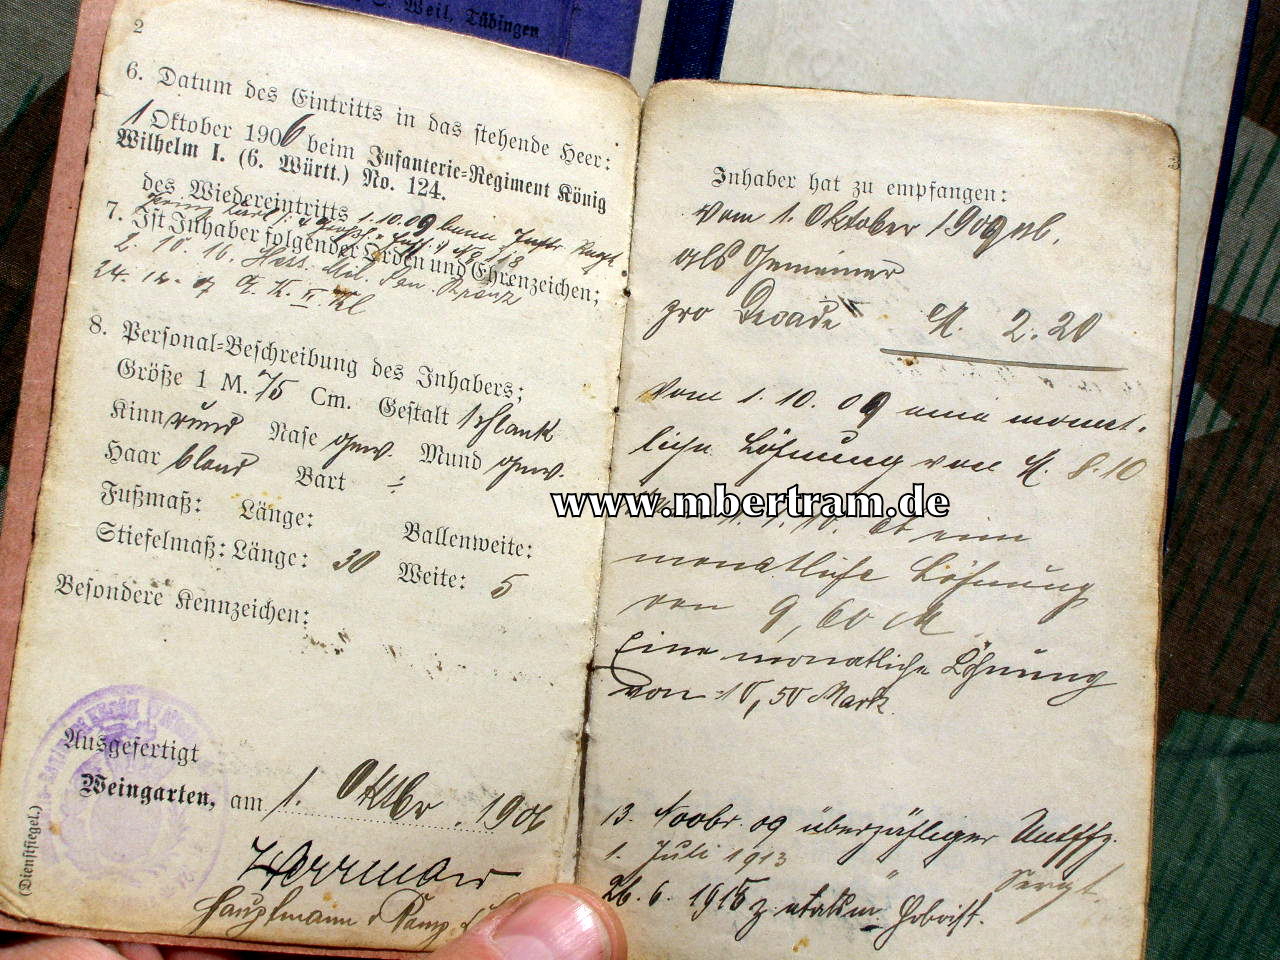 Weil, Tübingen
2
6. Datum des Eintritts in das stehende Heer:
1 Oktober 1906 beim Infanterie-Regiment König
Wilhelm I. (6. Württ.) No. 124.
des Wiedereintritts 1.10.09 beim Inftr. Regt.
N° 118
7. Ist Inhaber folgender Orden und Ehrenzeichen;
2. 10. 16. Hess. Mil. San. Kreuz
24. 12. 17 E. K. II. Kl
8. Personal-Beschreibung des Inhabers;
Größe 1 M. 75 Cm. Gestalt schlank
Kinn rund Nase gew. Mund gew.
Haar blond Bart
Fußmaß: Länge: Ballenweite:
Stiefelmaß: Länge: 30 Weite: 5
Besondere Kennzeichen:
Ausgefertigt
Weingarten, am 1. Oktbr. 1906
(Dienstsiegel.)
Hauptmann u. Komp.
3
Inhaber hat zu empfangen:
Vom 1. Oktober 1906 ab.
als Gemeiner
pro Decade M. 2.20
Vom 1.10.09 eine monat-
liche Löhnung von M. 8.10
1. 1. 10. ab eine
monatliche Löhnung
von 9,60 M
Eine monatliche Löhnung
von 10,50 Mark.
13. Novbr. 09 überzähliger Untffz.
1. Juli 1913 " Sergt.
26. 6. 1915 z. etatsm.
www.mbertram.de